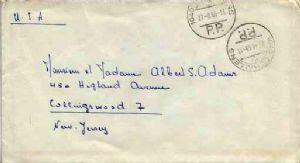 U.S.A
P.P.
P.P.
Monsieur et Madame Albert S. Adams
480 Highland Avenue
Collingswood 7
New Jersey